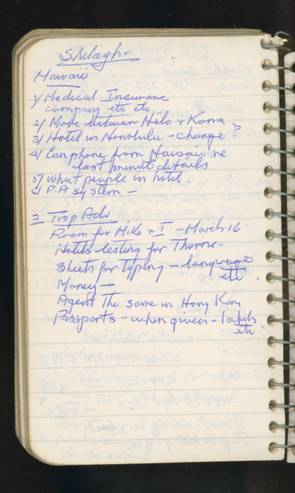 Shelagh -
Hawaii
1/ Medical Insuranc
company etc etc
2/ Mode between Hilo + Kona
3/ Hotel in Honolulu - change?
4/ Can phone from Hawaii re
last minute details
5/ what people in hotel.
6/ P.A system -
2 Trop Adv.
Room for Mike + I - March 16
Hotels - testing for
Sheets for typing - language
etc.
Money -
Agent the same in Hong Kon
Passports - when given -
etc.